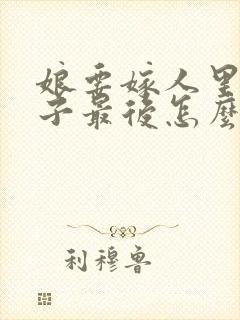 娘要嫁人里
子最後怎麼
利穆鲁